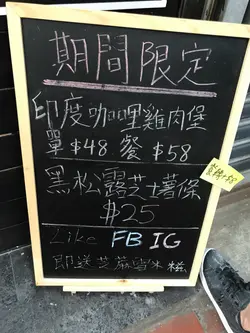 期間限定
印度咖喱雞肉堡
單 $48 餐 $58
黑松露芝士薯條
$25
Like FB IG
即送芝蔴雪米糍